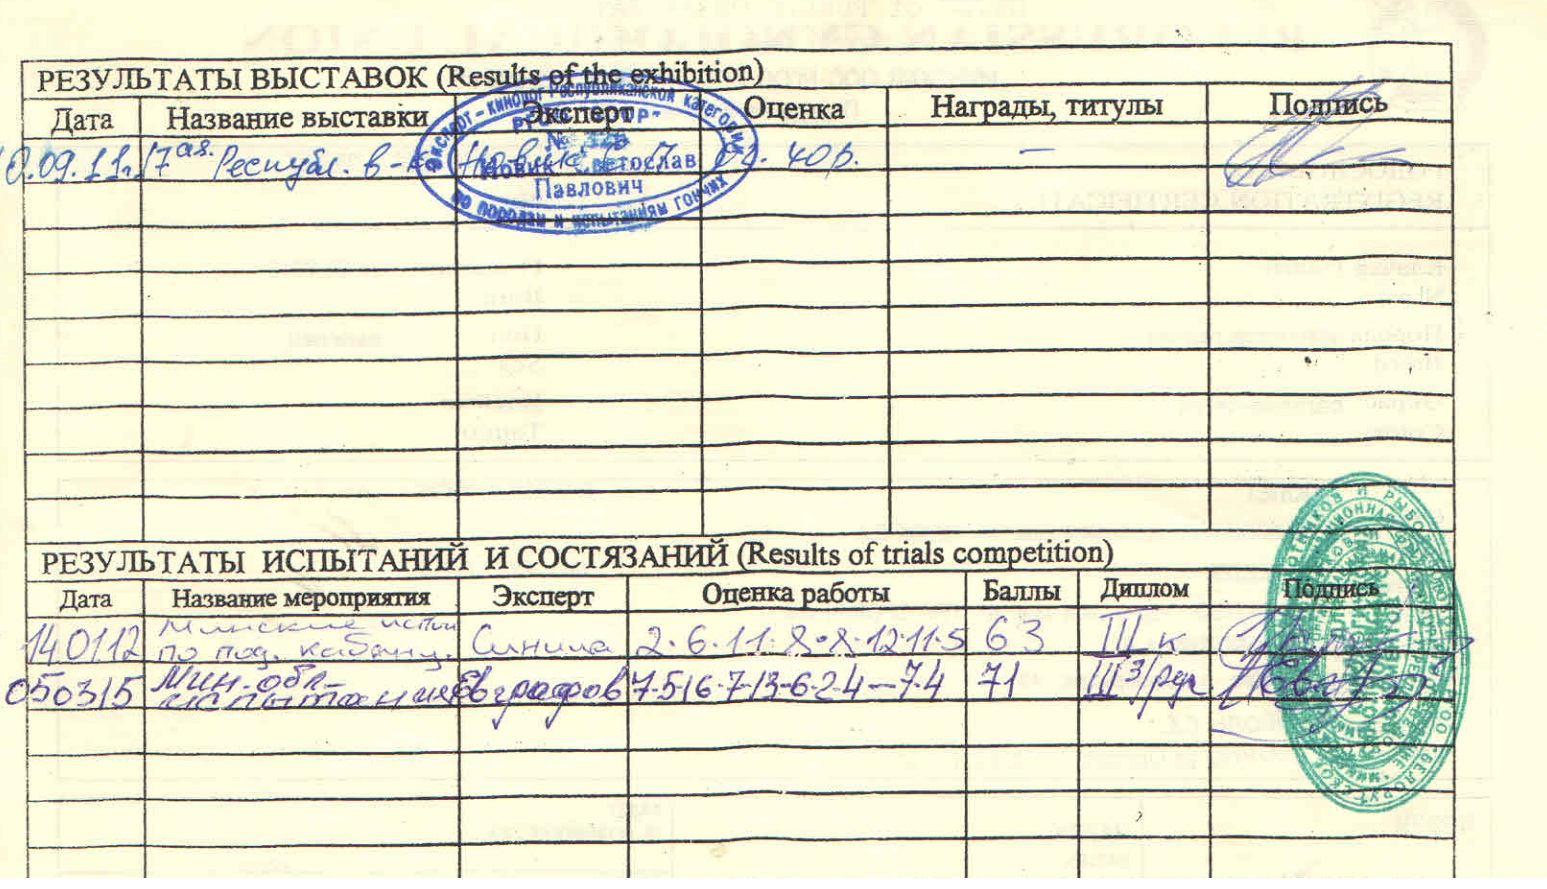 РЕЗУЛЬТАТЫ ВЫСТАВОК (Results of the exhibition)
Дата Название выставки Эксперт Оценка Награды, титулы Подпись
0.09.11г. 17ая Республ. в-ка Новик С.П. оч. хор. —
Эксперт - кинолог Республиканской категории
Новик Светослав
Павлович
по породам и испытаниям гончих
РЕЗУЛЬТАТЫ ИСПЫТАНИЙ И СОСТЯЗАНИЙ (Results of trials competition)
Дата Название мероприятия Эксперт Оценка работы Баллы Диплом Подпись
140112 Минские испыт
по под. кабану. Синица 2-6-11-8-8-12-11-5 63 III к
050315 Мин. обл.
испытания Евграфов 7-5-16-7-13-6-2-4-7-4 71 III З/рус